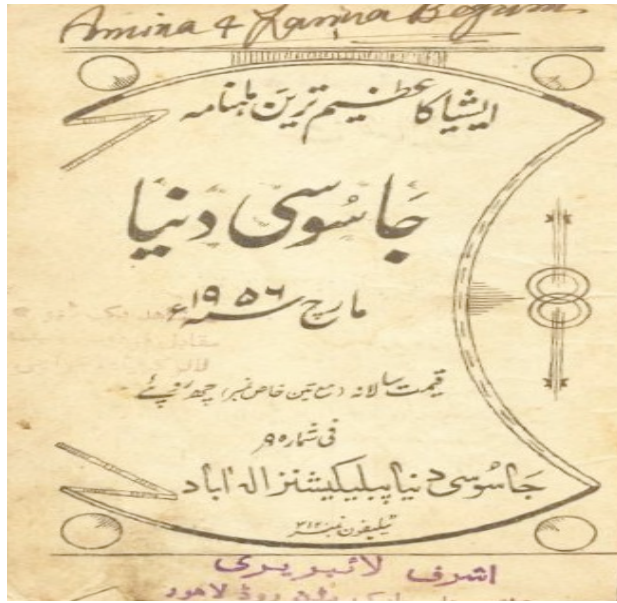 Amina & Zarina Begum.
ایشیا کا عظیم ترین ماہنامہ
جاسوسی دنیا
مارچ ۱۹۵۶ء
قیمت سالانہ (مع تین خاص نمبر) چھ روپئے
فی شمارہ ۹؍
جاسوسی دنیا پبلیکیشنز الہ آباد
ٹیلیفون نمبر ۳۱۲
اشرف لائبریری
روڈ لاہور